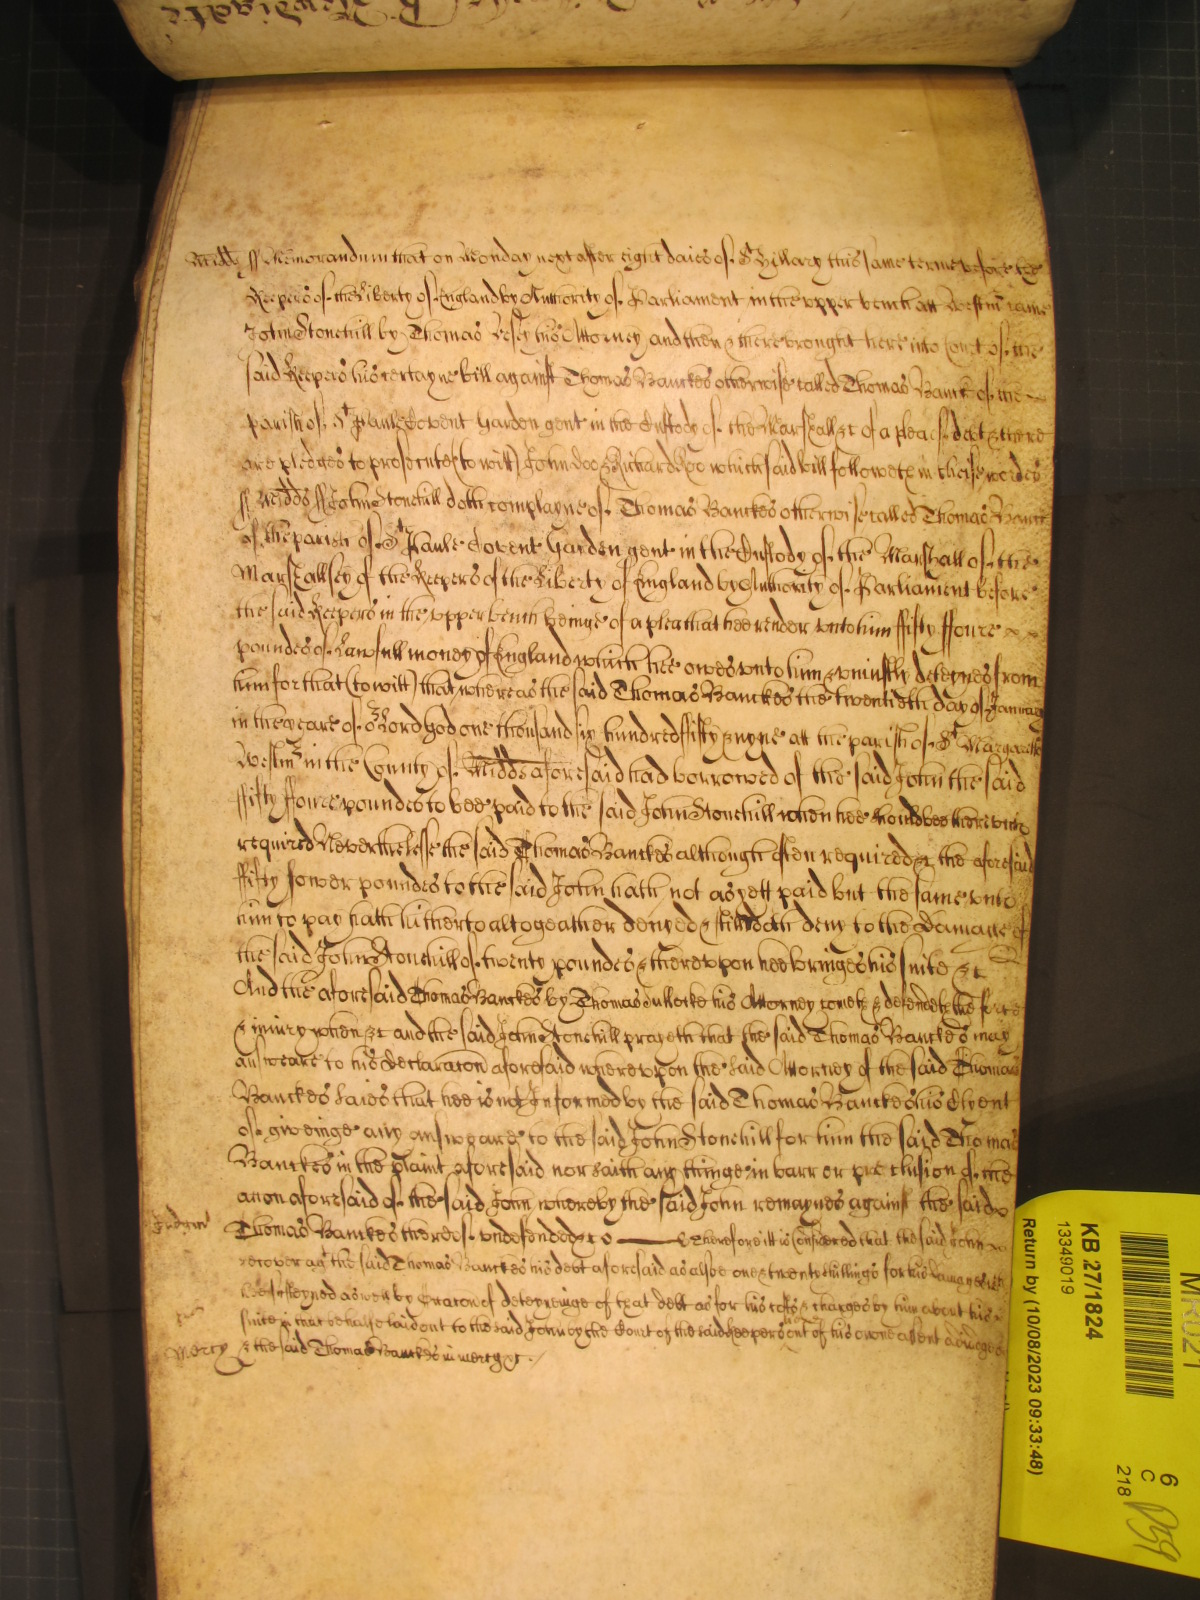 Midds ss Memorandum that on Monday next after eight daies of St Hillary this same terme before the
Keepers of the Liberty of England by Authority of Parliament in the upper bench att Westmr came
John Stonehill by Thomas Vesey his Attorney and then & there brought here into Court of the
said Keepers his certayne bill against Thomas Banckes otherwise called Thomas Banck of the
parish of St Paule Covent Garden gent in the Custody of the Marshall &c of a plea of debt & there
are pledges to prosecute (to witt) John doo & Richard Roo which said bill followeth in theise wordes
ss Midds ss John Stonehill doth complayne of Thomas Banckes otherwise called Thomas Banck
of the parish of St Paule Covent Garden gent in the Custody of the Marshall of the
Marshallsey of the Keepers of the Liberty of England by Authority of Parliament before
the said Keepers in the upper bench beinge of a plea that hee render unto him ffifty ffoure
poundes of Lawfull money of England which hee owes unto him & uniustly deteynes from
him for that (to witt) that whereas the said Thomas Banckes the twentieth day of January
in the yeare of or Lord god one thousand six hundred fifty & nyne att the parish of St Margaretts
Westmr in the County of Midds aforesaid had borrowed of the said John the said
ffifty ffoure poundes to bee paid to the said John Stonehill when hee should bee thereunto
required Neverthelesse the said Thomas Banckes although often required &c the aforesaid
ffifty fower poundes to the said John hath not as yett paid but the same unto
him to pay hath hitherto altogeather denyed & still doth deny to the Damage of
the said John Stonehill of twenty poundes & thereupon hee bringes his suite &c
And the aforesaid Thomas Banckes by Thomas Cullocke his Attorney cometh & defendeth the force
& iniury when &c and the said John Stonehill prayeth that the said Thomas Banckes may
answeare to his declaracon aforesaid whereupon the said Attorney of the said Thomas
Banckes saies that hee is not Informed by the said Thomas Banckes his Clyent
of giveinge any answeare to the said John Stonehill for him the said Thomas
Banckes in the plaint aforesaid nor saith any thinge in barr or preclusion of the
accon aforesaid of the said John whereby the said John remaynes against the said
Thomas Banckes thereof undefended &c Therefore itt is Considered that the said John
recover agt the said Thomas Banckes his debt aforesaid as alsoe one & twenty shillings for his damages which
hee susteyned aswell by Occacon of deteyneinge of that debt as for his costs & charges by him about his
suite in that behalfe laid out to the said John by the Court of the said Keepers out of his owne assent adiudged
Mercy & the said Thomas Banckes in mercy &c
KB 27/1824
13349019
Return by (10/08/2023 09:33:48)
6
C
218